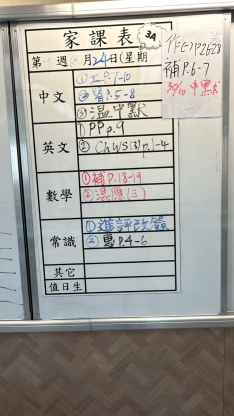 家課表
3A
第 週 月24日(星期
中文
①工P.7-10
②補P.5-8
③溫中默
英文
①PP p.9
② Ch WS(3)p.1-4
數學
①補P.18-19
常識
①進評改簽
② P.4-6
其它
值日生
作(二)P26-28
補P.6-7
30/10 中默